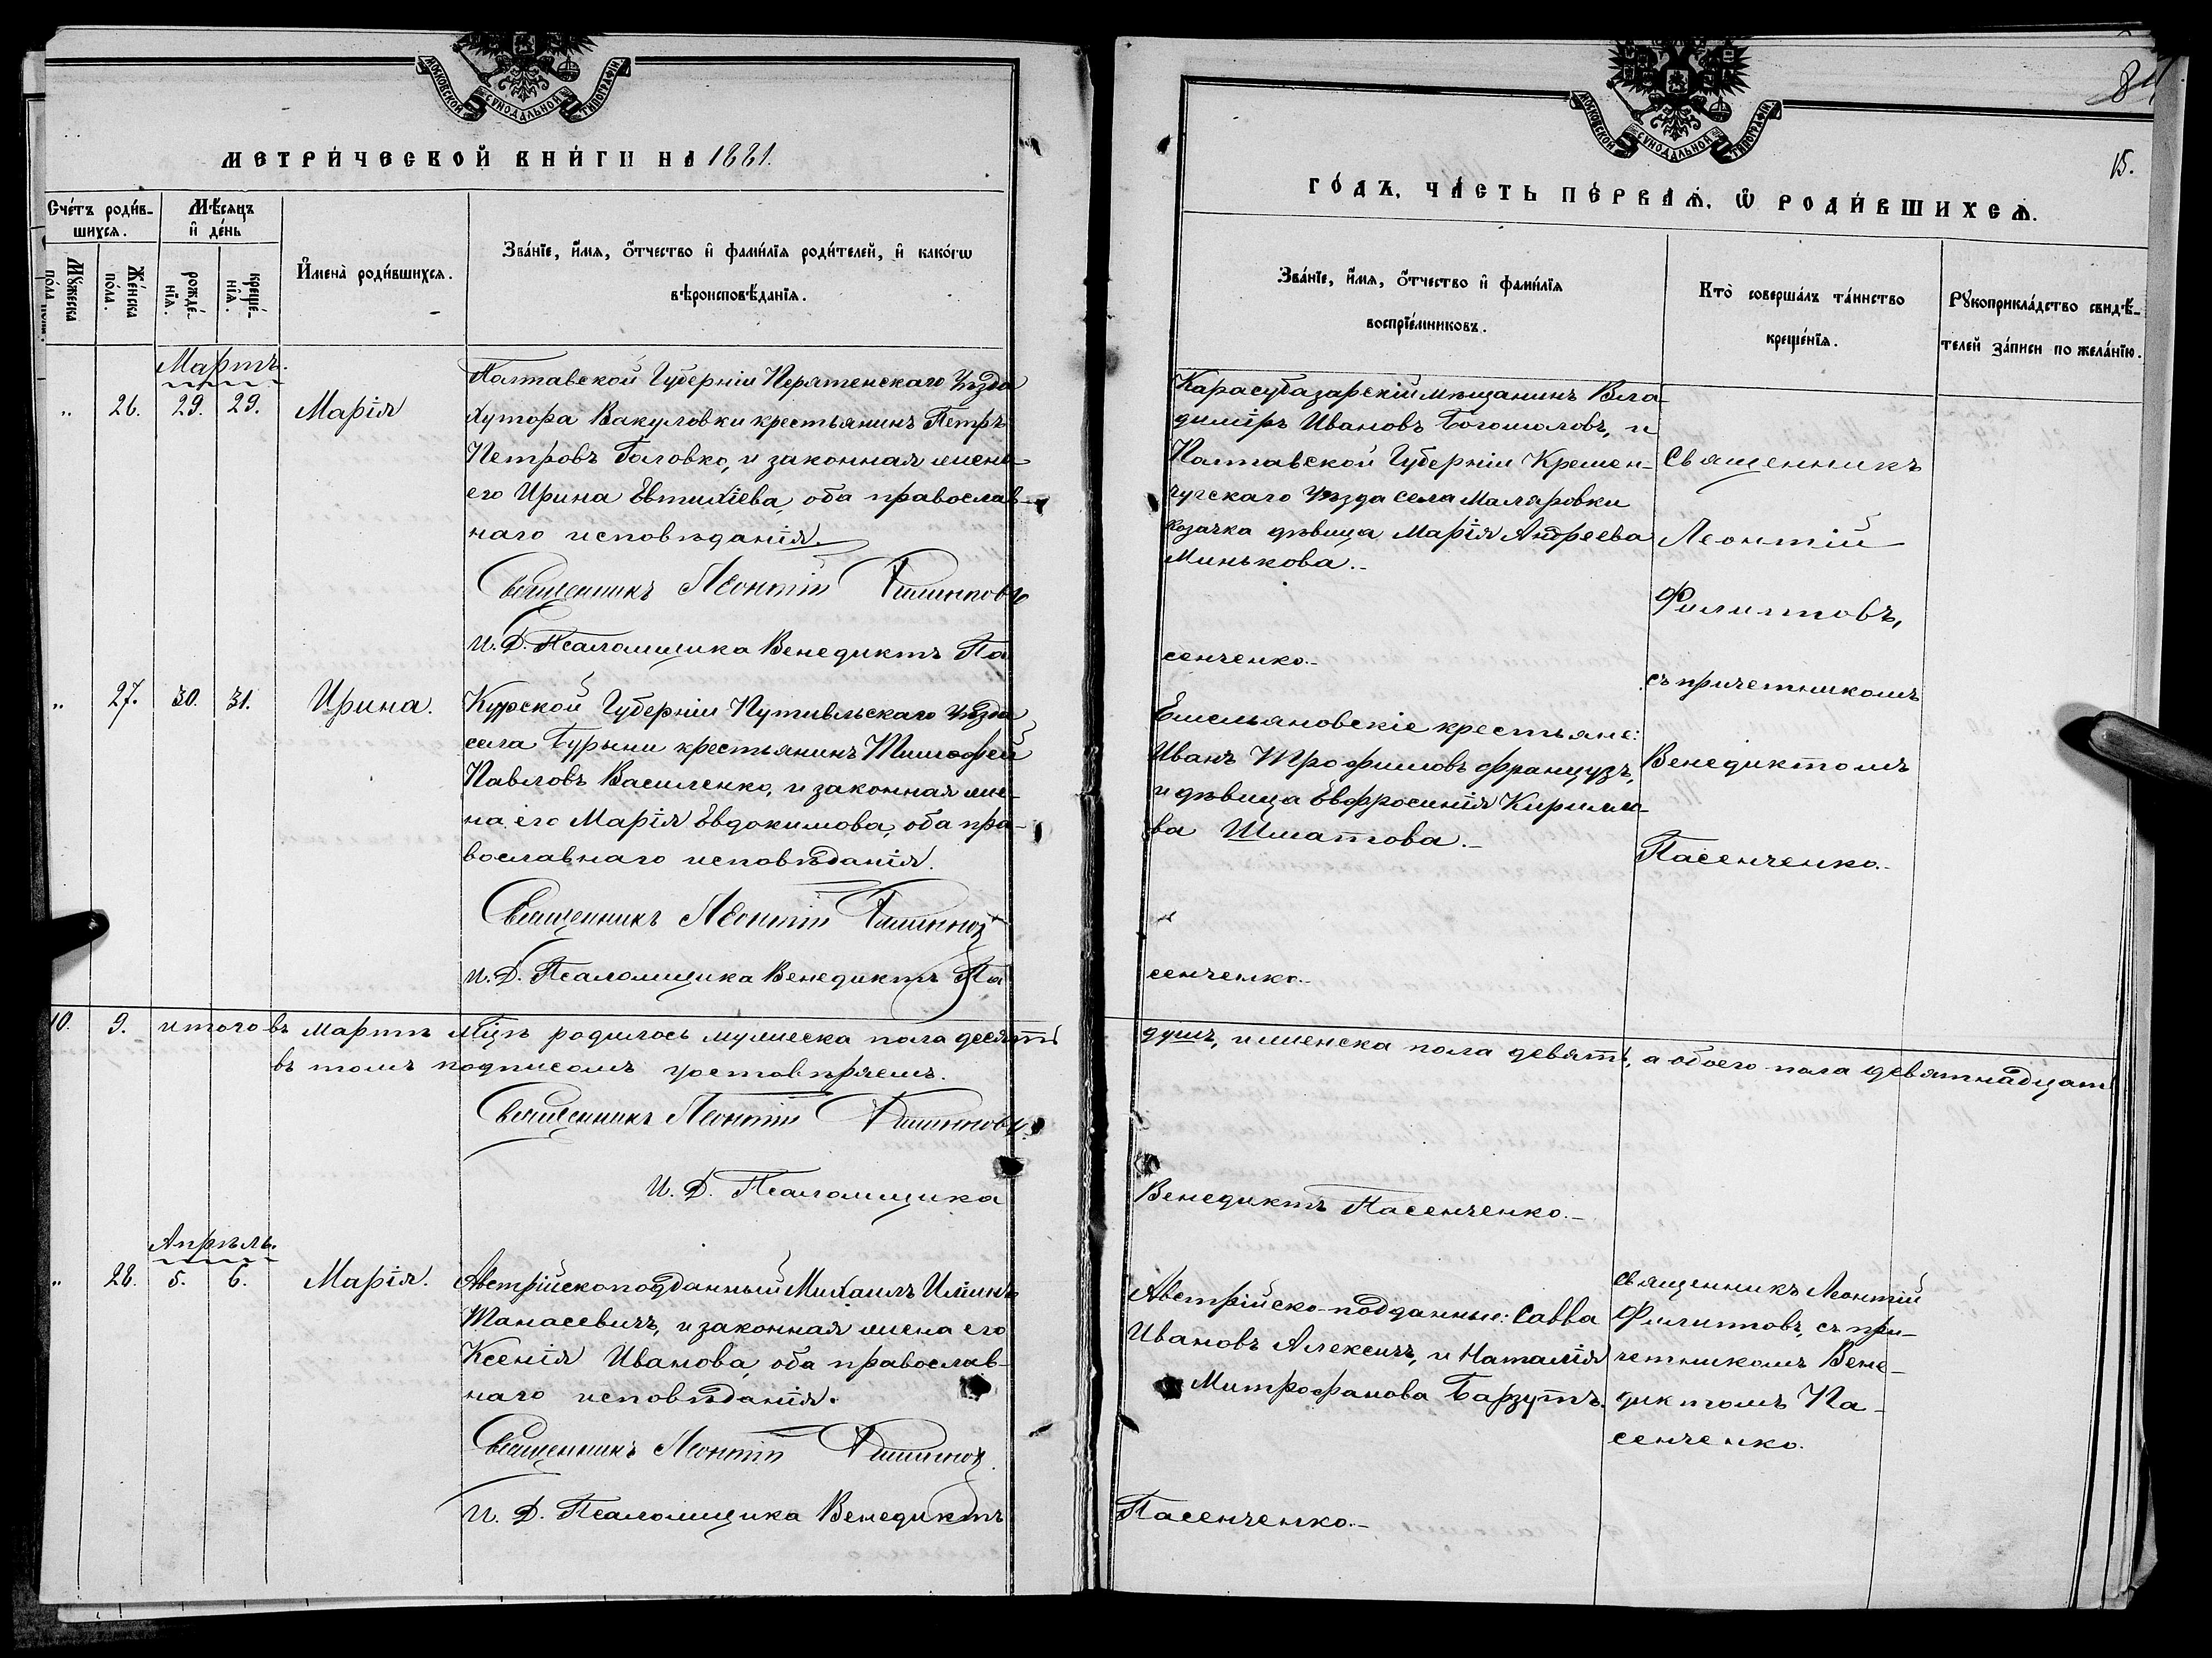 МОСКОВСКОЙ СѴНОДАЛЬНОЙ ТИПОГРАФІИ
МЕТРИ́ЧЕСКОЙ КНИ́ГИ НА 1881.
Сче́тъ роди́в-
шихся.
Мѣ́сяцъ
и де́нь
Мꙋ́жеска по́ла.
Же́нска по́ла.
рожде́-
нїя.
креще́-
нїя.
И҆мена̀ роди́вшихся.
Зва́нїе, и҆́мя, ѻ҆́тчество и҆ фами́лїя роди́телей, и҆ како́гѡ
вѣроисповѣ́данїя.
Мартъ.
„ 26. 29. 29. Марія
Полтавской Губерніи Пирятенскаго Уѣзда
Хутора Вакуловки крестьянинъ Петръ
Петровъ Головко, и законная жена
его Ирина Евтихіева, оба православ-
наго исповѣданія.
Священникъ Леонтій Филипповъ
И. Д. Псаломщика Венедиктъ Па
„ 27. 30. 31. Ирина.
Курской Губерніи Путивльскаго Уѣзда
села Бурыни крестьянинъ Тимофей
Павловъ Василенко, и законная же-
на его Марія Евдокимова, оба пра-
вославнаго исповѣданія.
Священникъ Леонтій Филипповъ
И. Д. Псаломщика Венедиктъ Па
10. 9. итого въ мартѣ мцѣ родилось мужеска пола десять
въ томъ подписомъ удостовѣряемъ.
Священникъ Леонтій Филипповъ.
И. Д. Псаломщика
Апрѣль.
„ 28. 5. 6. Марія.
Австрійскоподданный Михаилъ Иліинъ
Танасевичъ, и законная жена его
Ксенія Иванова, оба православ-
наго исповѣданія.
Священникъ Леонтій Филипповъ.
И. Д. Псаломщика Венедиктъ
МОСКОВСКОЙ СѴНОДАЛЬНОЙ ТИПОГРАФІИ
15.
ГО́ДЪ, ЧА́СТЬ ПЕ́РВАЯ, Ѡ҆ РОДИ́ВШИХСЯ.
Зва́нїе, и҆́мя, ѻ҆́тчество и҆ фами́лїя
воспрїе́мниковъ.
Кто̀ соверша́лъ та́инство
креще́нїя.
Рꙋкоприкла́дство свидѣ́-
телей за́писи по жела́нїю.
Карасубазарскій мѣщанинъ Вла-
димиръ Ивановъ Богомоловъ, и
Полтавской Губерніи Кремен-
чугскаго Уѣзда села Маляровки
козачка дѣвица Марія Андреева
Минькова.-
сенченко.-
Емельяновскіе крестьяне:
Иванъ Трофимовъ Французъ,
и дѣвица Евфросинія Кирило-
ва Шматова.-
сенченко.-
Священникъ
Леонтій
Филипповъ,
съ причетникомъ
Венедиктомъ
Пасенченко.-
душъ, и женска пола девять, а обоего пола девятнадцать
Венедиктъ Пасенченко.-
Австрійско-подданные: Савва
Ивановъ Алексичъ, и Наталія
Митрофанова Барзутъ.
Пасенченко.-
Священникъ Леонтій
Филипповъ, съ при-
четникомъ Вене-
диктомъ Па-
сенченко.